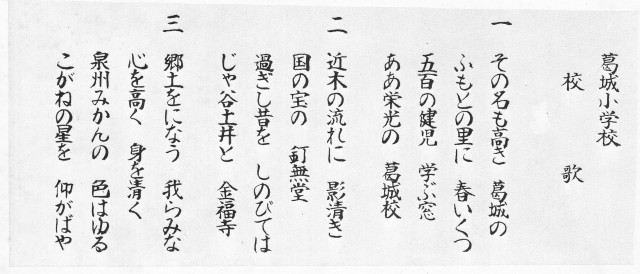 葛城小学校
校 歌
一 その名も高き 葛城の
ふもとの里に 春いくつ
五百の健児 学ぶ窓
ああ栄光の 葛城校
二 近木の流れに 影清き
国の宝の 釘無堂
過ぎし昔を しのびては
じゃ谷土井と 金福寺
三 郷土をになう 我らみな
心を高く 身を清く
泉州みかんの 色はゆる
こがねの星を 仰がばや